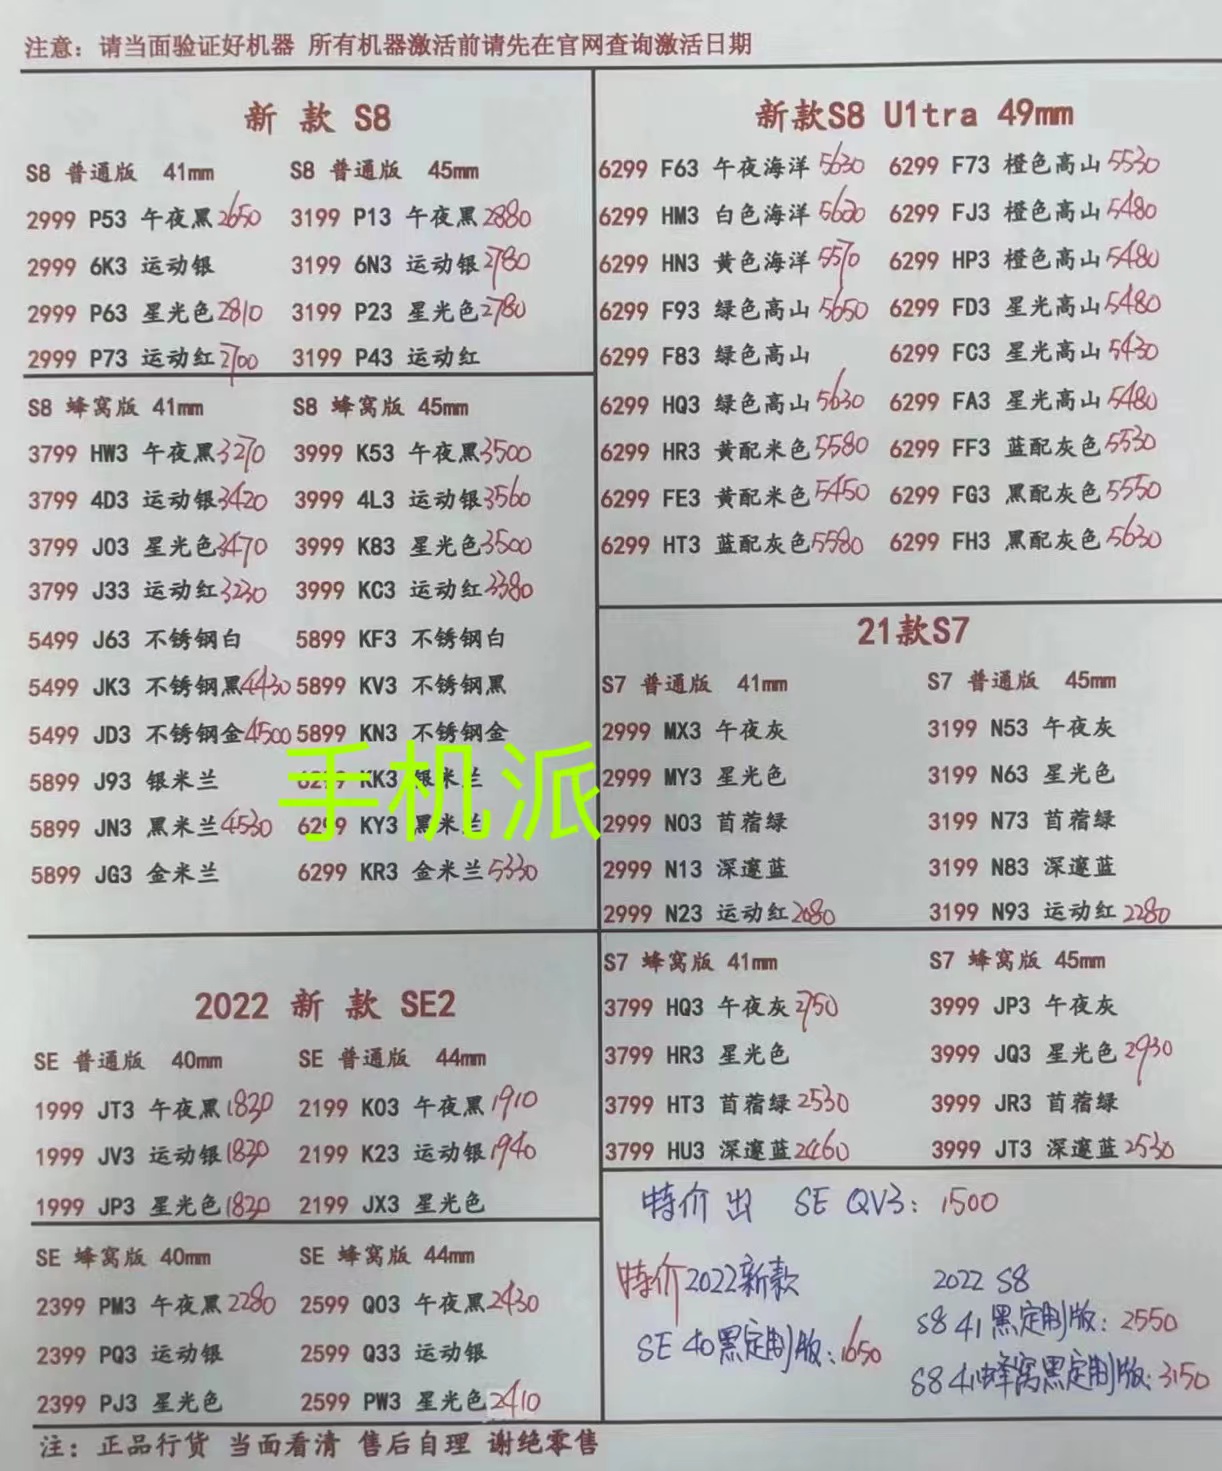 注意：请当面验证好机器 所有机器激活前请先在官网查询激活日期
新 款 S8
S8 普通版 41mm S8 普通版 45mm
2999 P53 午夜黑 2650 3199 P13 午夜黑 2880
2999 6K3 运动银 3199 6N3 运动银 2780
2999 P63 星光色 2810 3199 P23 星光色 2780
2999 P73 运动红 2700 3199 P43 运动红
S8 蜂窝版 41mm S8 蜂窝版 45mm
3799 HW3 午夜黑 3270 3999 K53 午夜黑 3500
3799 4D3 运动银 3420 3999 4L3 运动银 3560
3799 J03 星光色 3470 3999 K83 星光色 3500
3799 J33 运动红 3230 3999 KC3 运动红 3380
5499 J63 不锈钢白 5899 KF3 不锈钢白
5499 JK3 不锈钢黑 4430 5899 KV3 不锈钢黑
5499 JD3 不锈钢金 4500 5899 KN3 不锈钢金
5899 J93 银米兰 6299 KK3 银米兰
5899 JN3 黑米兰 4530 6299 KY3 黑米兰
5899 JG3 金米兰 6299 KR3 金米兰 5330
手机派
2022 新 款 SE2
SE 普通版 40mm SE 普通版 44mm
1999 JT3 午夜黑 1830 2199 K03 午夜黑 1910
1999 JV3 运动银 1830 2199 K23 运动银 1940
1999 JP3 星光色 1820 2199 JX3 星光色
SE 蜂窝版 40mm SE 蜂窝版 44mm
2399 PM3 午夜黑 2280 2599 Q03 午夜黑 2430
2399 PQ3 运动银 2599 Q33 运动银
2399 PJ3 星光色 2599 PW3 星光色 2410
新款S8 U1tra 49mm
6299 F63 午夜海洋 5630 6299 F73 橙色高山 5530
6299 HM3 白色海洋 5600 6299 FJ3 橙色高山 5480
6299 HN3 黄色海洋 5570 6299 HP3 橙色高山 5480
6299 F93 绿色高山 5650 6299 FD3 星光高山 5480
6299 F83 绿色高山 6299 FC3 星光高山 5430
6299 HQ3 绿色高山 5630 6299 FA3 星光高山 5480
6299 HR3 黄配米色 5580 6299 FF3 蓝配灰色 5530
6299 FE3 黄配米色 5450 6299 FG3 黑配灰色 5550
6299 HT3 蓝配灰色 5580 6299 FH3 黑配灰色 5630
21款S7
S7 普通版 41mm S7 普通版 45mm
2999 MX3 午夜灰 3199 N53 午夜灰
2999 MY3 星光色 3199 N63 星光色
2999 N03 苜蓿绿 3199 N73 苜蓿绿
2999 N13 深邃蓝 3199 N83 深邃蓝
2999 N23 运动红 2080 3199 N93 运动红 2280
S7 蜂窝版 41mm S7 蜂窝版 45mm
3799 HQ3 午夜灰 2750 3999 JP3 午夜灰
3799 HR3 星光色 3999 JQ3 星光色 2930
3799 HT3 苜蓿绿 2530 3999 JR3 苜蓿绿
3799 HU3 深邃蓝 2460 3999 JT3 深邃蓝 2530
特价出 SE QV3：1500
特价2022新款
SE 40黑定制版：1650
2022 S8
S8 41黑定制版：2550
S8 41蜂窝黑定制版：3150
注：正品行货 当面看清 售后自理 谢绝零售